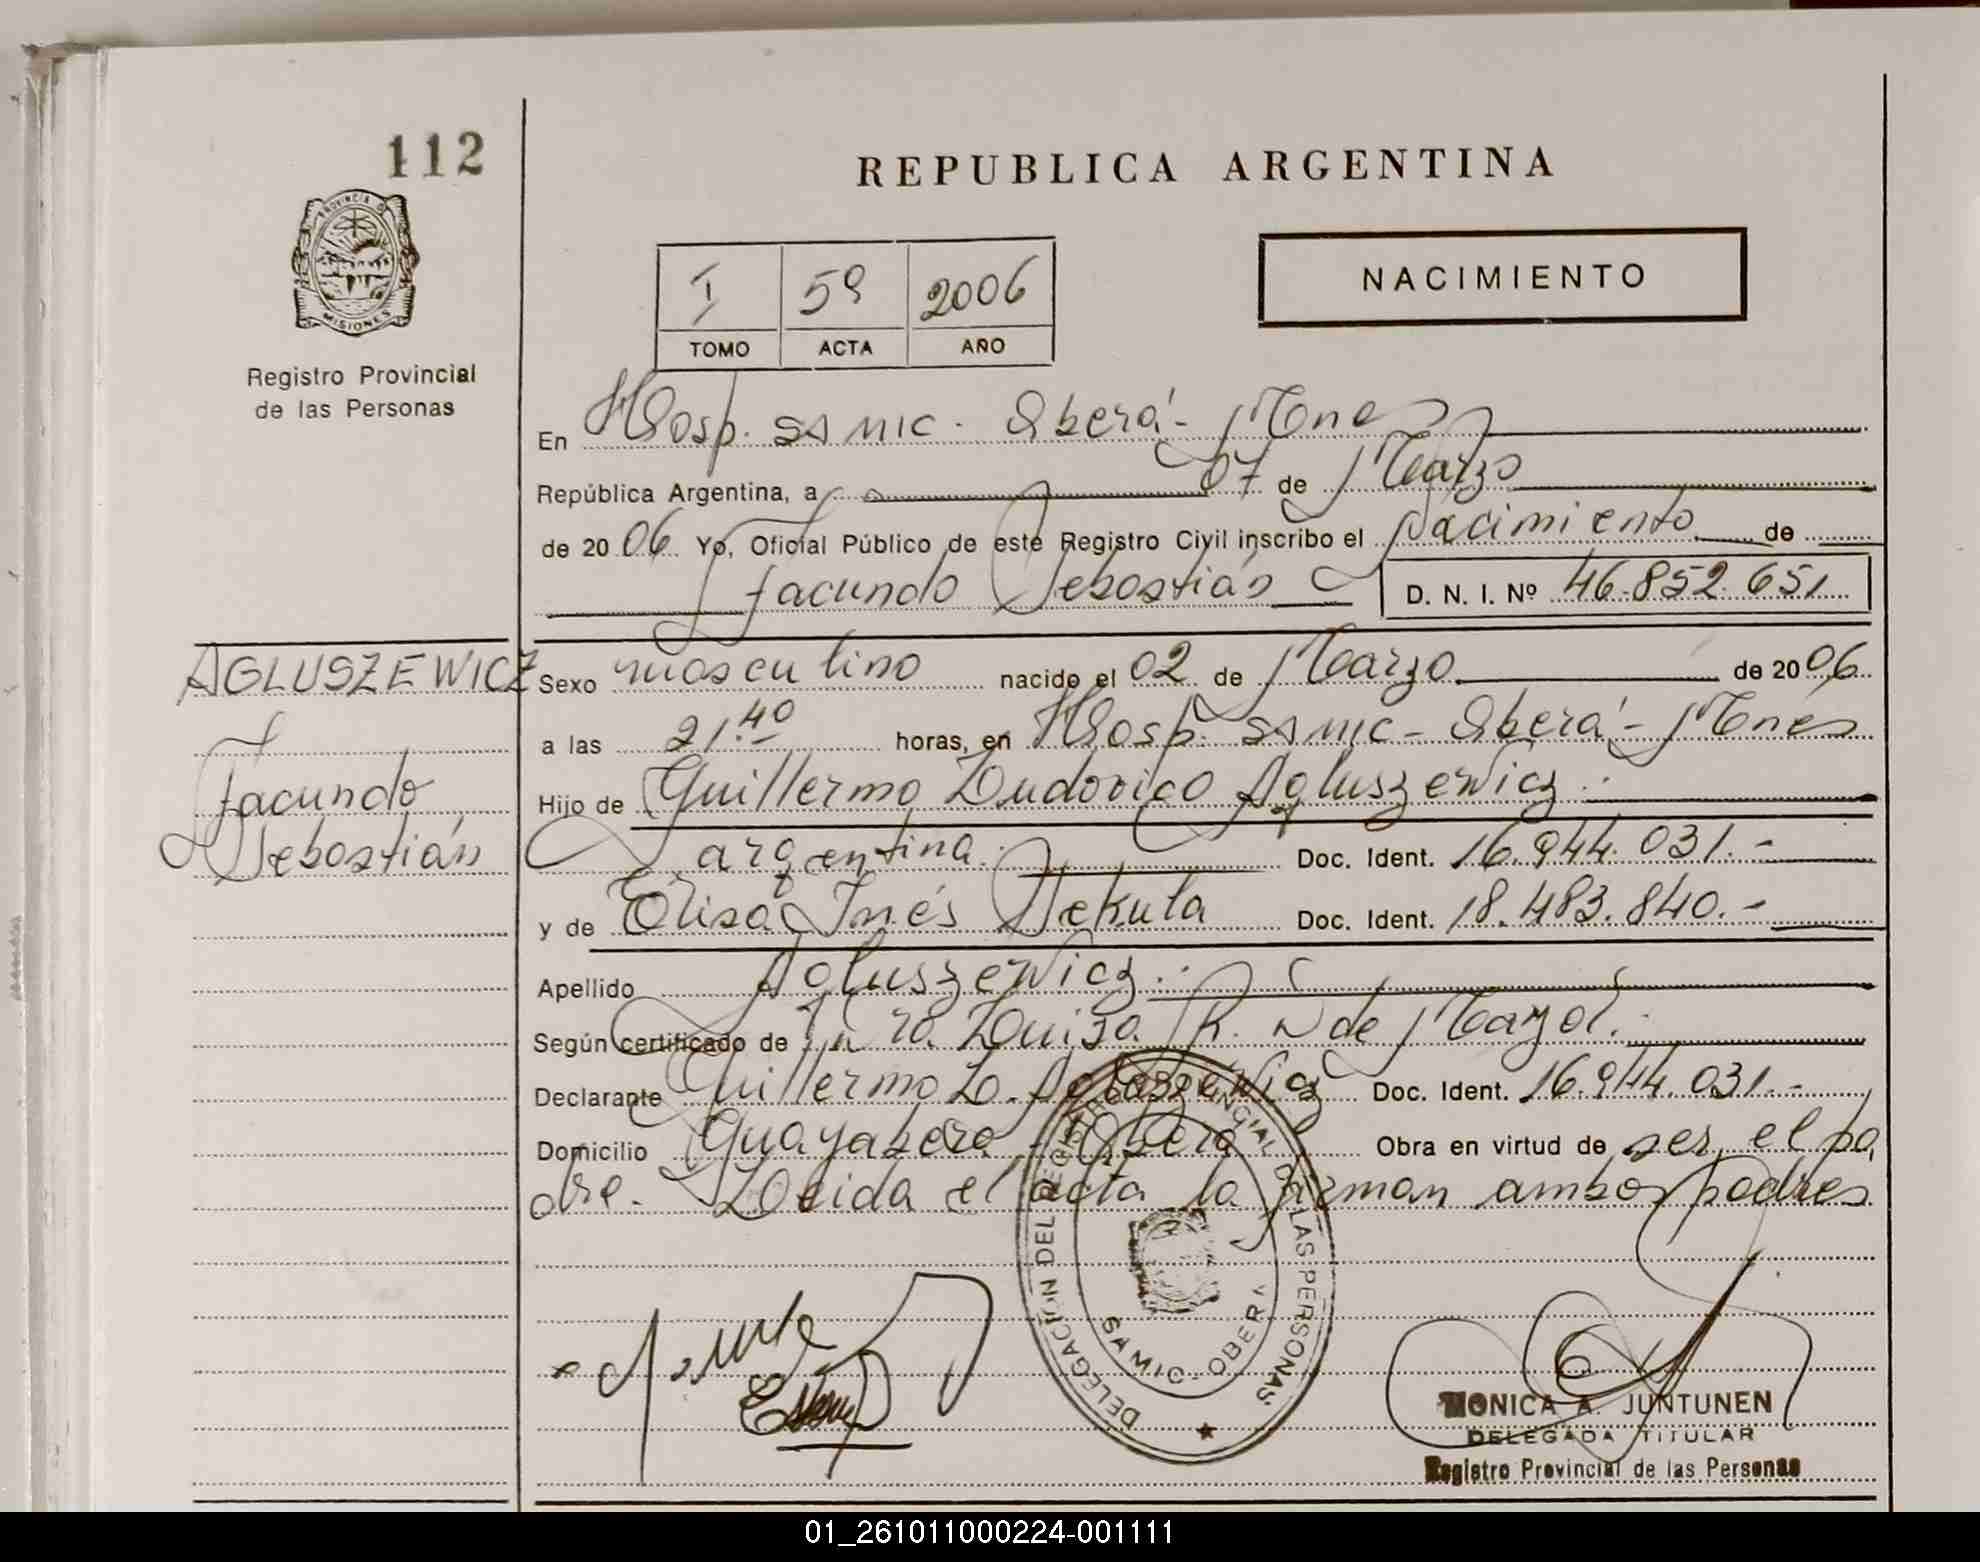 112
REPUBLICA ARGENTINA
PROVINCIA DE
MISIONES
Registro Provincial
de las Personas
NACIMIENTO
I 59 2006
TOMO ACTA AÑO
En Hosp. SAMIC. Oberá - Mnes
República Argentina, a 07 de Marzo
de 2006. Yo, Oficial Público de este Registro Civil inscribo el Nacimiento de
Facundo Sebastián D. N. I. Nº 46.852.651
AGLUSZEWICZ
Facundo
Sebastián
Sexo masculino nacido el 02 de Marzo de 2006.
a las 21.40 horas, en Hosp. SAMIC - Oberá - Mnes
Hijo de Guillermo Ludovico Agluszewicz.
argentina. Doc. Ident. 16.944.031.-
y de Elisa Inés Sekula Doc. Ident. 18.483.840.-
Apellido Agluszewicz.
Según certificado de Luisa R. de Mayol.
Declarante Guillermo L. Agluszewicz Doc. Ident. 16.944.031.-
Domicilio Guayabera - Oberá Obra en virtud de ser el pa
dre. Leida el acta la firman ambos padres
DELEGACIÓN DEL REGISTRO PROVINCIAL DE LAS PERSONAS
SAMIC - OBERA
MONICA A. JUNTUNEN
DELEGADA TITULAR
Registro Provincial de las Personas
01_261011000224-001111